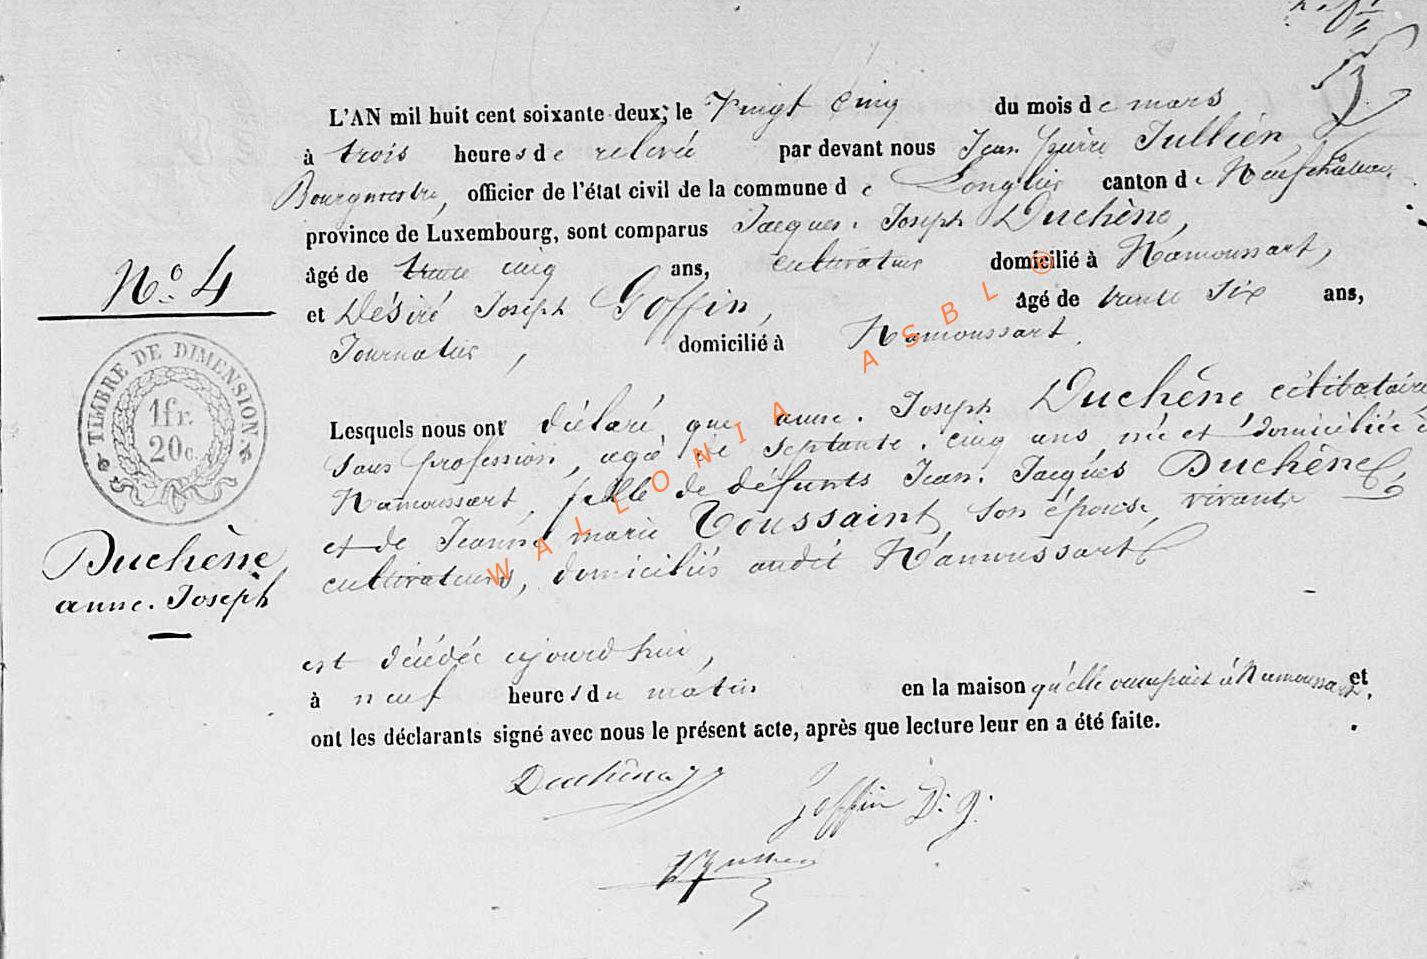 L'AN mil huit cent soixante deux, le Vingt Cinq du mois de mars
à trois heures de relevée par devant nous Jean Pierre Jullien,
Bourgmestre, officier de l'état civil de la commune de Longlier canton de Neufchâteau,
province de Luxembourg, sont comparus Jacques. Joseph Duchêne,
âgé de trente cinq ans, cultivateur domicilié à Namoussart,
et Désiré Joseph Goffin, âgé de trente six ans,
Journalier, domicilié à Namoussart.
Lesquels nous ont déclaré que anne. Joseph Duchêne célibataire
sans profession, agée de septante. cinq ans née et domiciliée à
Namoussart, fille de défunts Jean. Jacques Duchêne,
et de Jeanne marie Toussaint, son épouse, vivants
cultivateurs, domiciliés audit Namoussart
est décédée ajourd'hui,
à neuf heures du matin en la maison qu'elle occupait à Namoussart. et
ont les déclarants signé avec nous le présent acte, après que lecture leur en a été faite.
Duchêne JJ
Goffin D. J.
N° 4
TIMBRE DE DIMENSION
1 fr.
20 c.
Duchêne
anne. Joseph
WALLONIA ASBL ®